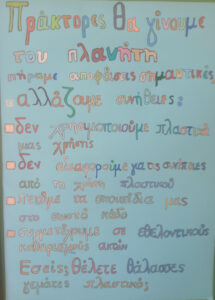 Πράκτορες θα γίνουμε
του πλανήτη
πήραμε αποφάσεις σημαντικές
αλλάζουμε συνήθειες:
δεν χρησιμοποιούμε πλαστικά
μιας χρήσης
δεν για τις συνέπειες
από τη χρήση πλαστικού
τα σκουπίδια μας
στο σωστό κάδο
συμμετέχουμε σε εθελοντικούς
καθαρισμούς ακτών
Εσείς; θέλετε θάλασσες
γεμάτες πλαστικό;